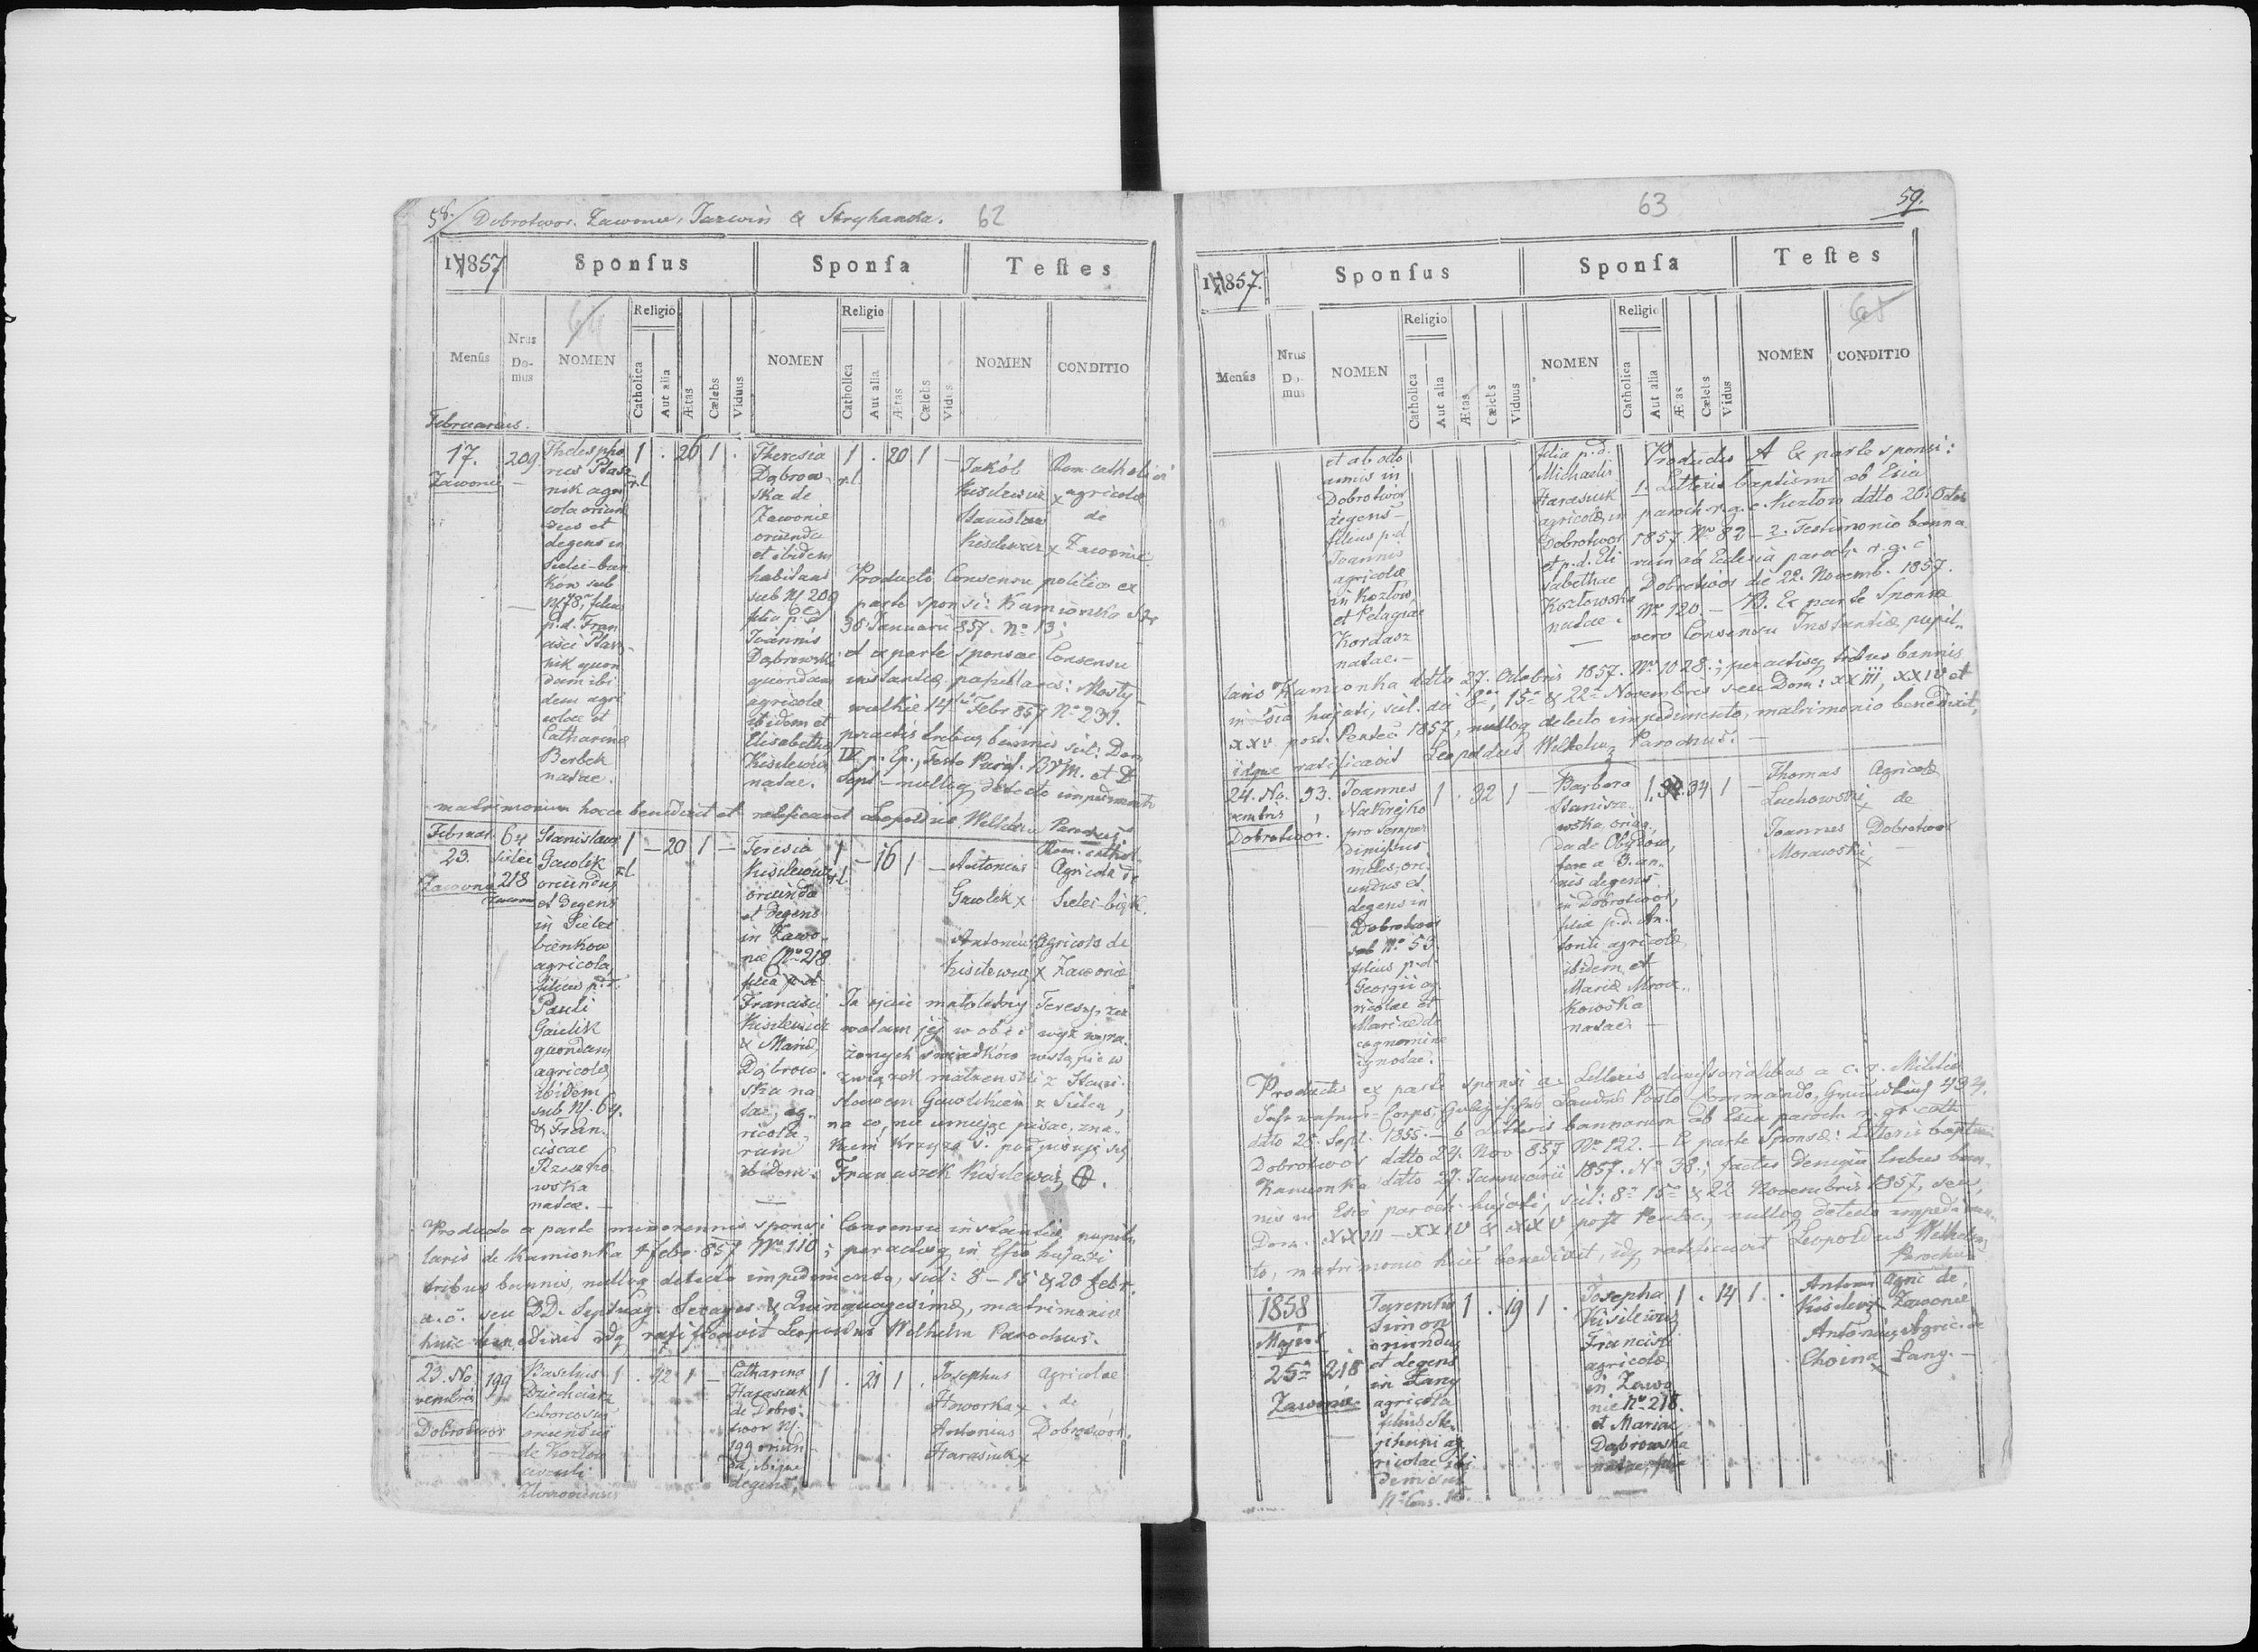 58. Dobrotwor. Zawonie, Jazwin & Stryhanka. 62
1857 Sponsus Sponsa Testes
Mensis
Nrus Domus
NOMEN
Religio
Catholica
Aut alia
Ætas
Cælebs
Viduus
NOMEN
Religio
Catholica
Aut alia
Ætas
Cælebs
Vidua
NOMEN
CONDITIO
64
Februarius.
17.
Zawonie
209
Thelespho
rus Ptasz
nik agri
cola oriun
dus et
degens in
Sielec-bień
ków sub
N 78, filius
p.d. Fran
cisci Ptasz
nik quon
dam ibi
dem agri
colae et
Catharina
Berbek
natae.
1 . 26 1 .
rl
Theresia
Dąbrow
ska de
Zawonie
oriunda
et ibidem
habitans
sub N 209
filia p.d.
Joannis
Dąbrowski
quondam
agricolæ
ibidem et
Elisabetha
Kisilewicz
natae.
1 . 20 1 -
rl
Jakób
Kisilewicz x
Stanislaw
Kisilewicz x
Rom. catholici
agricolæ
de
Zawonie
Producto Consensu politico ex
parte sponsi: Kamionka Str
30 Januarii 857. No 13;
et ex parte sponsae Consensu
instantiæ pupillaris: Mosty
wielkie 14 Febr 857 No 231.
peractis tribus bannis scil: Dom
IV p. Ep., Festo Purif. BVM. et D
Sept - nulloq detecto impedimento
matrimonium hocce benedixit et ratificavit Leopoldus Wilhelm Parochus
Februar.
23.
Zawonie
64
Sielec
218
Zawonie
Stanislaus
Gawlik
oriundus
et degens
in Sielec
bienkow
agricola,
filius p.d.
Pauli
Gawlik
quondam
agricolæ
ibidem
sub N. 64.
& Fran
ciscae
Rzeszo
wska
natae. -
1 - 20 1 -
rl
Teresia
Kisilewicz
oriunda
et degens
in Zawo
nie No 218
filia
Francisci
Kisilewicz
& Mariæ
Dąbrow
ska na
tae, ag
ricola
rum
ibidem.
1 - 16 1 -
rl
Antonius
Gawlik x
Rom. cathol.
Agricola de
Sielec-bieńk.
Antonius
Kisilewicz x
Agricola de
Zawonie
Ja ojciec małoletny Teresy, zez
walam jej w obec wyż wyra
żonych świadków wstąpić w
związek małżeński z Stani
sławem Gawlikiem z Sielca,
na co, nie umiejąc pisać, zna
kiem Krzyża S. podpisuję się
Franciszek Kisilewicz, +.
Producto ex parte minorennis sponsi Consensu instantiæ pupil
laris de Kamionka 4 febr. 857 No 110; peractisq in Esia hujati
tribus bannis, nulloq detecto impedimento, scil: 8 - 15 & 20 febr.
a.c. seu DD. Septuag. Sexages & Quinquagesima, matrimonio
huic benedixit idq ratificavit Leopoldus Wilhelm Parochus.
23. No
vembris
Dobrotwor
199
Basilius
Dziechciarz
laboriosus
oriundus
de Kozłow
circuli
Zloczoviensis
1 . 42 1 -
Catharina
Harasiuk
de Dobro
twor N.
199 oriun
da, ibique
degens,
1 . 21 1 .
Josephus
Haworka x
Antonius
Harasiuk x
Agricolae
de
Dobrotwór.
63 59.
1857. Sponsus Sponsa Testes
Mensis
Nrus Domus
NOMEN
Religio
Catholica
Aut alia
Ætas
Cælebs
Viduus
NOMEN
Religio
Catholica
Aut alia
Ætas
Cælebs
Vidua
NOMEN
CONDITIO
65
et ab octo
annis in
Dobrotwor
degens -
filius p.d.
Joannis
agricolæ
in Kozłow,
et Pelagiae
Kordasz
natae. -
filia p.d.
Michaelis
Harasiuk
agricolæ in
Dobrotwor
et p.d. Eli
sabethae
Kozłowska
natae.
Productis A Ex parte sponsi:
1. Litteris baptismi ab Esia
paroch r.g.c. Kozłow ddto 20. Octob
1857 No 82 - 2. Testimonio banno
rum ab Eclesia paroch. r.g.c
Dobrotwor die 22. Novemb. 1857.
No 120. - B. Ex parte Sponsæ
vero Consensu Instantiæ pupil
laris Kamionka ddto 27. Octobris 1857. No 1028.; peractisq tribus bannis
in Esia hujati, scil. die 8a, 15a & 22a Novembris seu Dom: XXIII, XXIV et
XXV post Pentec 1857, nulloq detecto impedimento, matrimonio benedixit,
idque ratificavit Leopoldus Wilhelm Parochus. -
24. No
vembris
Dobrotwór.
53.
Joannes
Nakrejko
pro semper
dimissus
miles, ori
undus et
degens in
Dobrotwor
sub No 53
filius p.d.
Georgii ag
ricolae et
Mariae de
cognomine
ignotae.
1 . 32 1 -
Barbara
Stanisze
wska, oriun
da de Obydów,
fere a 3. an
nis degens
in Dobrotwór,
filia p.d. An
tonii agricolæ
ibidem et
Mariæ Mrocz
kowska
natae. -
1 . 34 1 -
Thomas
Luchowski x
Joannes
Morawski x
Agricolæ
de
Dobrotwor
Productis ex parte sponsi a. Litteris dimissorialibus a c.r. Militia
ddto 28. Sept. 1855. - b Litteris bannorum ab Esia paroch r. gr cath
Dobrotwor ddto 24. Nov 857 No 122. - Ex parte Sponsæ: Litteris baptismi
Kamionka ddto 27. Januarii 1857. No 38.; factis denique tribus ban
nis in Esia paroch hujati, scil: 8a 15a & 22 Novembris 1857, seu,
Dom. XXIII - XXIV & XXV post Pentec., nulloq detecto impedimen
to, matrimonio huic benedixit, idq ratificavit Leopoldus Wilhelm
Parochus
1858
Majus
25a
Zawonie
218
Jaremko
Simon
oriundus
et degens
in Łany
agricola
filius Ste
phani ag
ricolae ibi
dem sub
No Cons. 15.
1 . 19 1 .
Josepha
Kisilewicz
Francisci
agricolæ
in Zawo
nie No 218.
et Mariae
Dąbrowska
natae, filia
1 . 14 1 .
Antoni
Kisilewicz
Antonius
Choina x
Agric de,
Zawonie
Agric. de
Łany. -